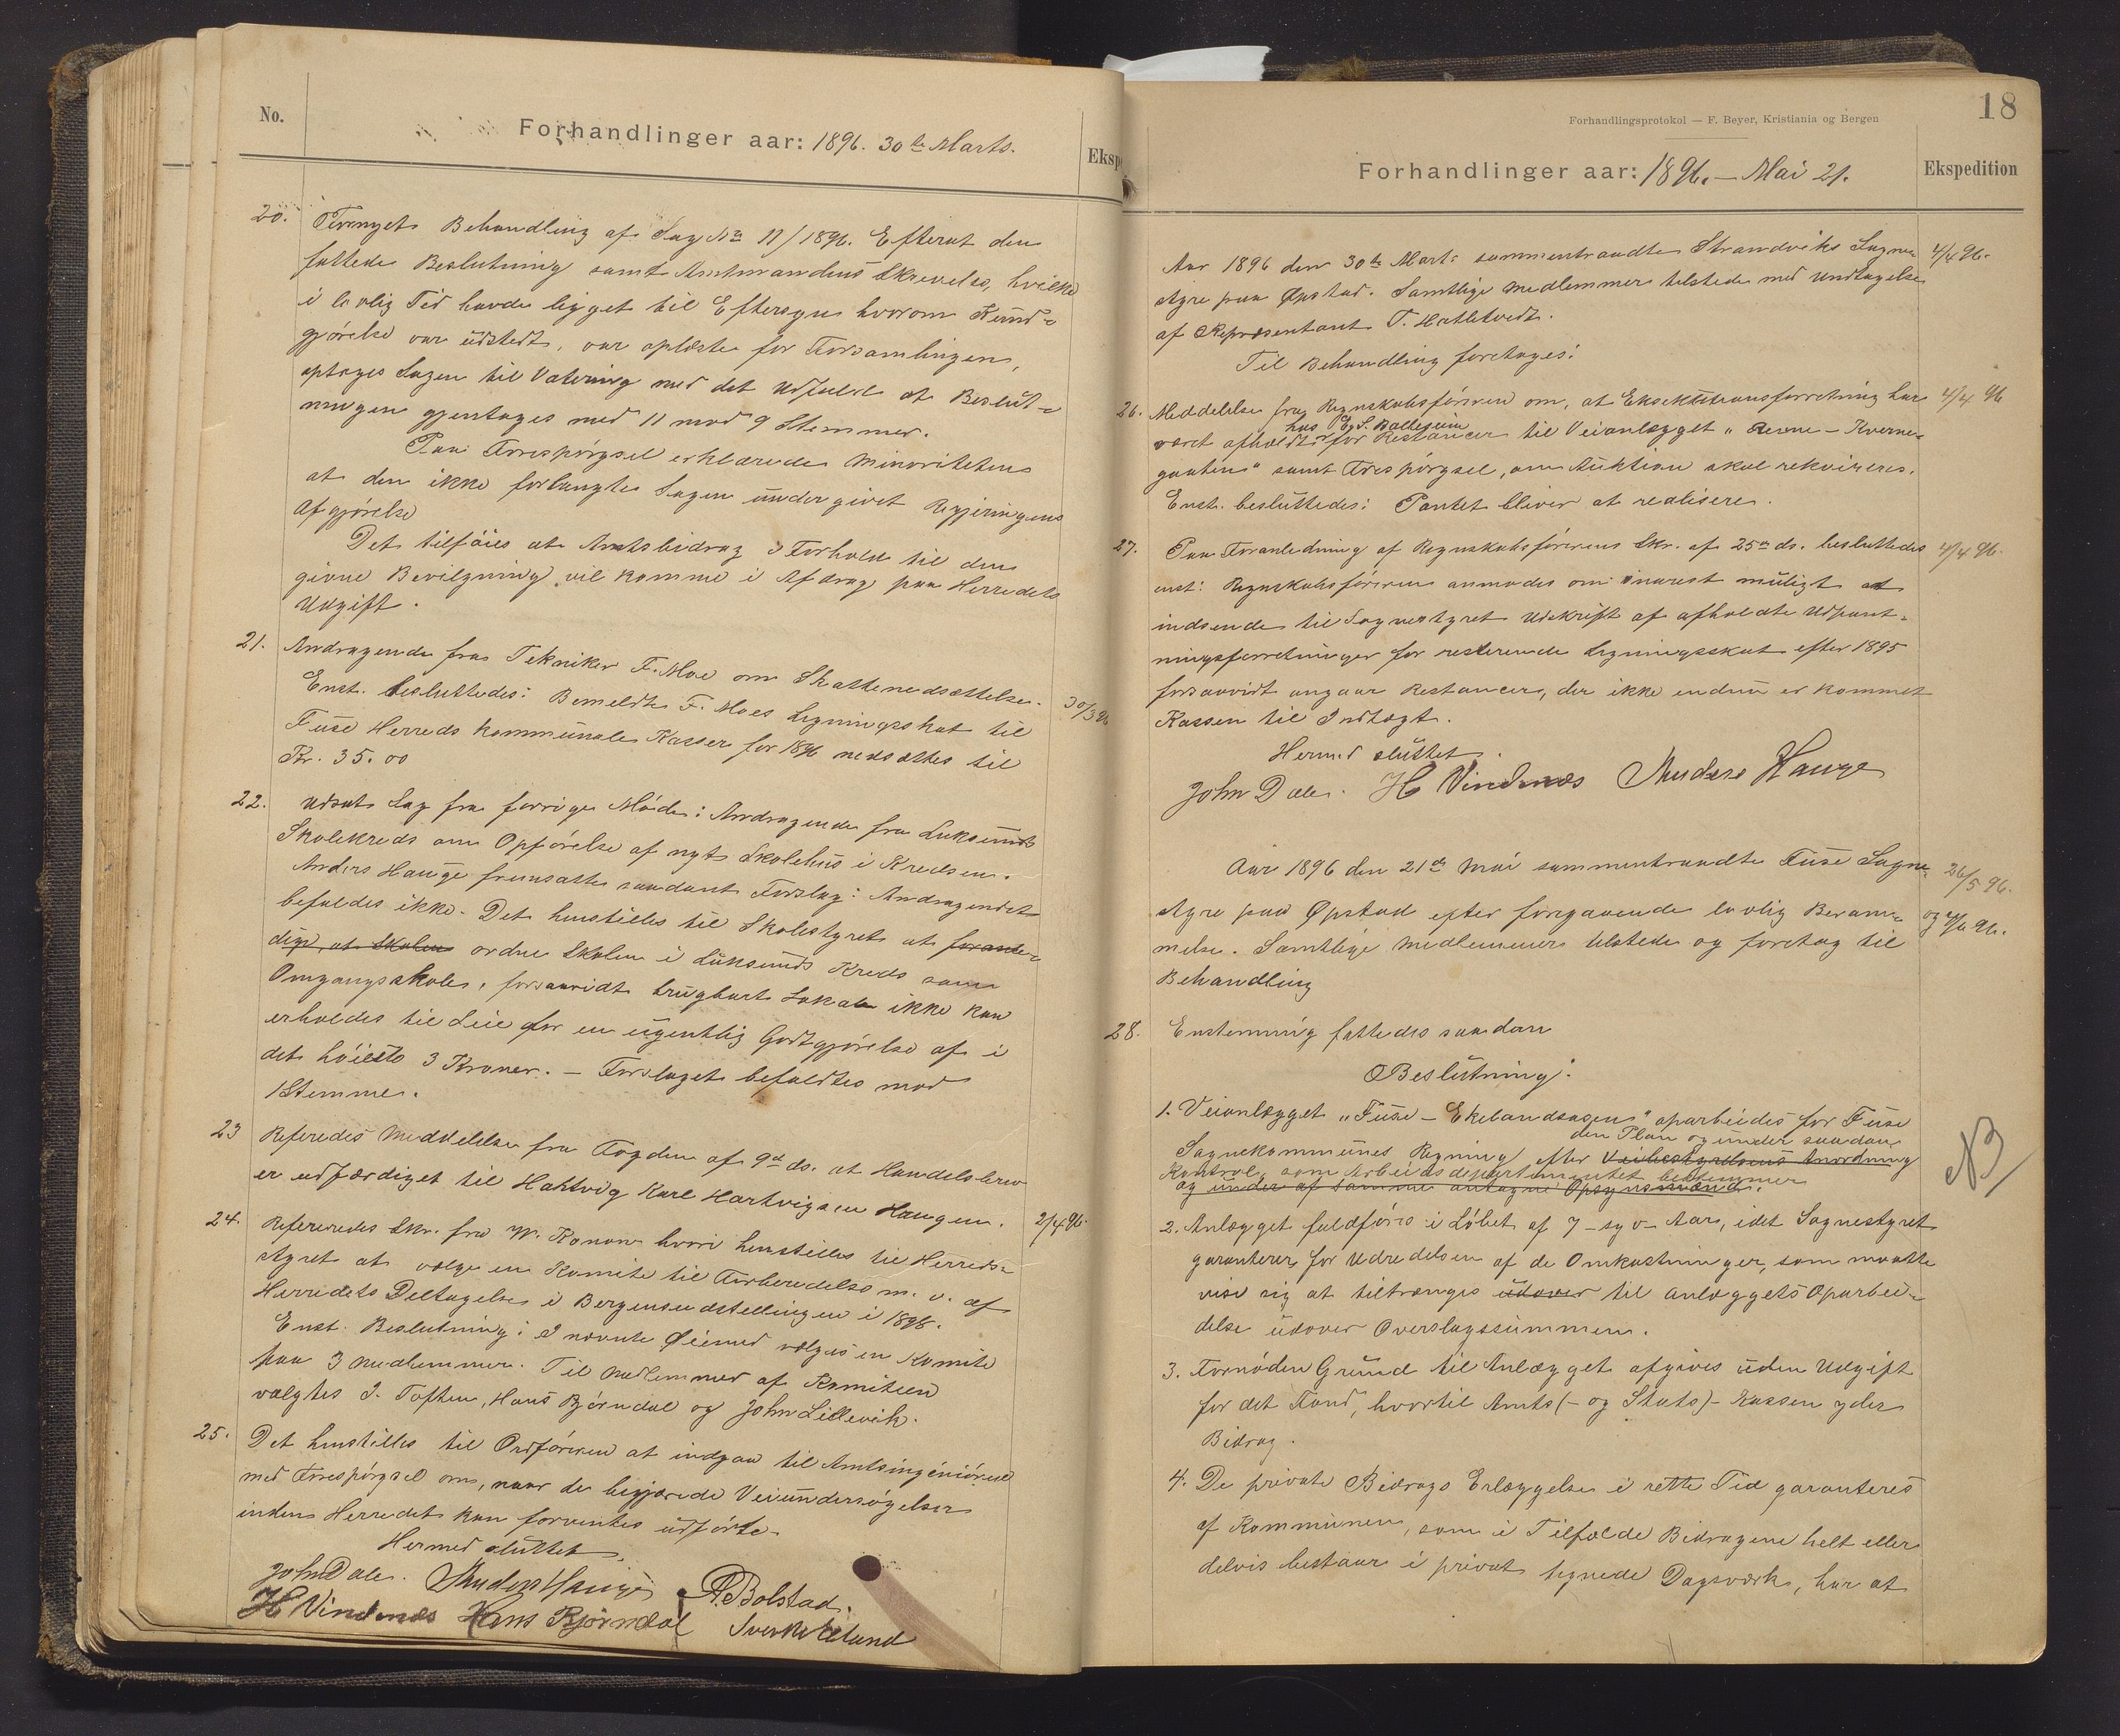 No.
Forhandlinger aar: 1896. 30te Marts.
Eksp
20. Fornyet Behandling af Sag No 11/1896. Efterat den
fattede Beslutning samt Amtmandens Skrivelse, hvilke
i lovlig Tid havde ligget til Eftersyn hvorom Kund-
gjørelse var udstedt, var oplæste for Forsamlingen,
optoges Sagen til Votering med det Udfald at Beslut-
ningen gjentoges med 11 mod 9 Stemmer.
Paa Forespørgsel erklærede Minoriteten
at den ikke forlangte Sagen undergivet Regjeringens
Afgjørelse
Det tilføies at Amtsbidrag i Forhold til den
givne Bevilgning vil komme i Afdrag paa Herredets
Udgift.
21. Andragende fra Tekniker F. Moe om Skattenedsættelse.
Enst. besluttedes: Bemeldte F. Moes Ligningsskat til
30/3 96
Fuse Herreds kommunale Kasser for 1896 nedsættes til
Kr. 35.00
22. Udsat Sag fra forrige Møde: Andragende fra Luksunds
Skolekreds om Opførelse af nyt Skolehus i Kredsen.
Anders Hauge fremsatte saadant Forslag: Andragendet
befaldes ikke. Det henstilles til Skolestyret at foran-
dige, at Skolen ordne Skolen i Luksunds Kreds som
Omgangsskole, forsaavidt brugbart Lokale ikke kan
erholdes til Leie for en ugentlig Godtgjørelse af i
det høieste 3 Kroner. — Forslaget befaldtes mod
1 Stemme.
23 Referedes Meddelelse fra Fogden af 9d ds. at Handelsbrev
er udfærdiget til Hartvig Karl Hartvigsen Haugen.
24. Refereredes Skr. fra W. Konow hvori henstilles til Herreds-
2/4 96.
styret at vælge en Komite til Forberedelse m. v. af
Herredets Deltagelse i Bergensudstillingen i 1898.
Enst. Beslutning: I nævnte Øiemed vælges en Komite
paa 3 Medlemmer. Til Medlemmer af Komiteen
valgtes I. Toften, Hans Bjørndal og John Lillevik.
25. Det henstilles til Ordføreren at indgaa til Amtsingeniøren
med Forespørgsel om, naar de begjærede Veiundersøgelser
inden Herredet kan forventes udførte.
Hermed sluttet.
John Dale. Anders Hauge A. Bolstad.
H Vindenes Hans Bjørndal Sverke Eland
18
Forhandlingsprotokol — F. Beyer, Kristiania og Bergen
Forhandlinger aar: 1896. — Mai 21.
Ekspedition
Aar 1896 den 30te Marts sammentraadte Strandviks Sogne-
4/4 96.
styre paa Øpstad. Samtlige Medlemmer tilstede med Undtagelse
af Repræsentant T. Hatletvedt.
Til Behandling foretoges:
26. Meddelelse fra Regnskabsføreren om, at Eksekutionsforretning har
4/4 96
hos
været afholdt for Restancer til Veianlægget "Revne - Kverne-
gaaten" samt Forespørgsel, om Auktion skal rekvireres.
Enst. besluttedes: Pantet bliver at realisere.
27. Paa Foranledning af Regnskabsførerens Skr. af 25de ds. besluttedes
4/4 96.
enst: Regnskabsføreren anmodes om snarest muligt at
indsende til Sognestyret Udskrift af afholdte Udpant-
ningsforretninger for resterende Ligningsskat efter 1895
forsaavidt angaar Restancer, der ikke endnu er kommet
Kassen til Indtægt.
Hermed sluttet.
John Dale. H Vindenes Anders Hauge
Aar 1896 den 21de Mai sammentraadte Fuse Sogne-
26/5 96.
styre paa Øpstad efter foregaaende lovlig Beram-
og 4/6 96.
melse. Samtlige Medlemmer tilstede og foretog til
Behandling
28. Enstemmig fattedes saadan
Beslutning:
1. Veianlægget "Fuse - Ekelandsosen" oparbeides for Fuse
den Plan og under saadan
Sognekommunes Regning efter Veibestyrelsens Anordning
Kontrol, som Arbeidsdepartementet bestemmer
og under af samme antagne Opsynsmænd.
NB
2. Anlægget fuldføres i Løbet af 7 - syv - Aar, idet Sognestyret
garanterer for Udredelsen af de Omkostninger, som maatte
vise sig at tiltrænges udover til Anlæggets Oparbei-
delse udover Overslagssummen.
3. Fornøden Grund til Anlægget afgives uden Udgift
for det Fond, hvortil Amts (- og Stats) - Kassen yder
Bidrag.
4. De private Bidrags Erlæggelse i rette Tid garanteres
af Kommunen, som i Tilfælde Bidragene helt eller
delvis bestaar i privat tegnede Dagsværk, har at